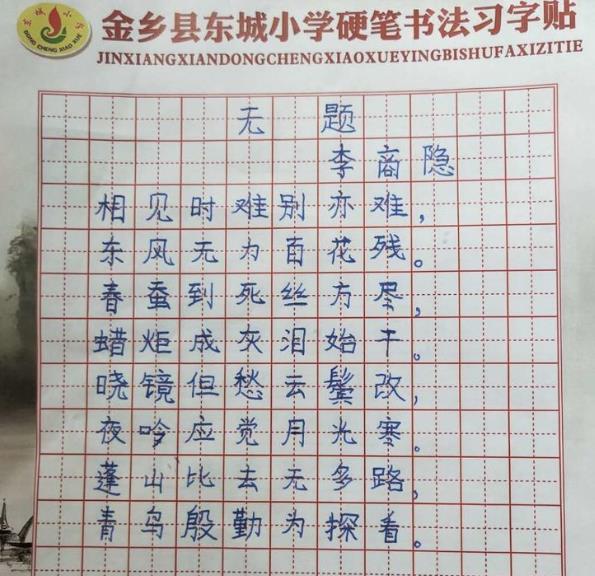 东城小学
DONG CHENG XIAO XUE
金乡县东城小学硬笔书法习字贴
JINXIANGXIANDONGCHENGXIAOXUEYINGBISHUFAXIZITIE
无题
李商隐
相见时难别亦难，
东风无为百花残。
春蚕到死丝方尽，
蜡炬成灰泪始干。
晓镜但愁云鬓改，
夜吟应觉月光寒。
蓬山比去无多路，
青鸟殷勤为探看。